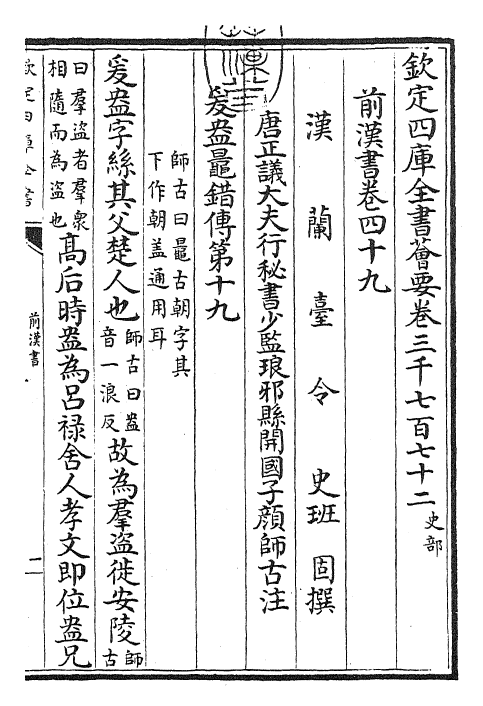 欽定四庫全書薈要卷三千七百七十二 史部
前漢書卷四十九
漢 蘭 臺 令 史班 固撰
唐正議大夫行秘書少監琅邪縣開國子顔師古注
爰盎鼂錯傳第十九
師古曰鼂古朝字其
下作朝盖通用耳
爰盎字絲其父楚人也
師古曰盎
音一浪反
故為羣盗徙安陵
師
古
曰羣盗者羣衆
相隨而為盗也
高后時盎為吕禄舍人孝文即位盎兄
欽定四庫全書
前漢書